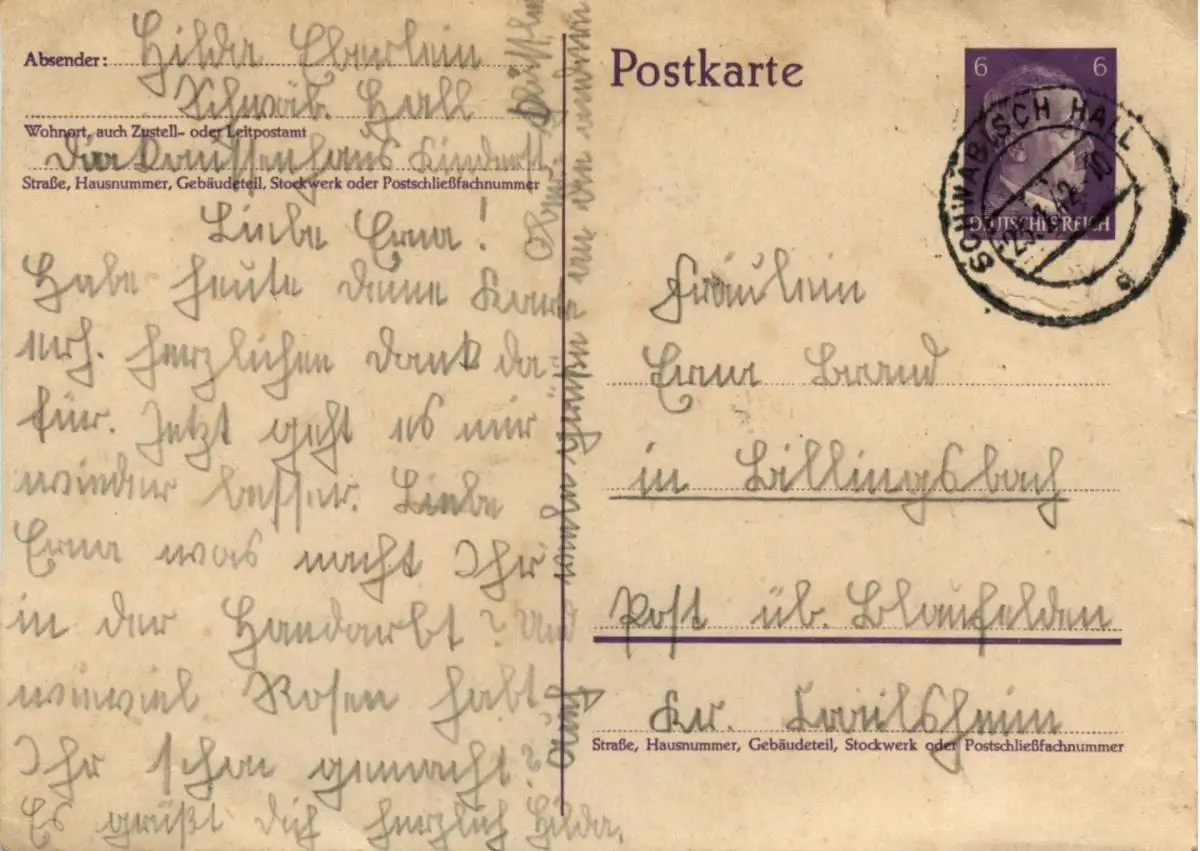 Absender: Hilda Eberlein
Schwäb. Hall
Wohnort, auch Zustell- oder Leitpostamt
Diakonissenhaus Kinderst.
Straße, Hausnummer, Gebäudeteil, Stockwerk oder Postschließfachnummer
Liebe Erna!
Habe heute deine Karte
erh. Herzlichen Dank da-
für. Jetzt geht es mir
wieder besser. Liebe
Erna was macht Ihr
in der Handarbt? Und
wieviel Rosen habt
Ihr schon gemacht?
Es grüßt Dich herzlich Hilda.
Auch vielen Grüße an die andern
Postkarte
6 6
DEUTSCHES REICH
SCHWÄBISCH HALL
Fräulein
Erna Brand
in Billingsbach
Post üb. Blaufelden
Kr. Crailsheim
Straße, Hausnummer, Gebäudeteil, Stockwerk oder Postschließfachnummer